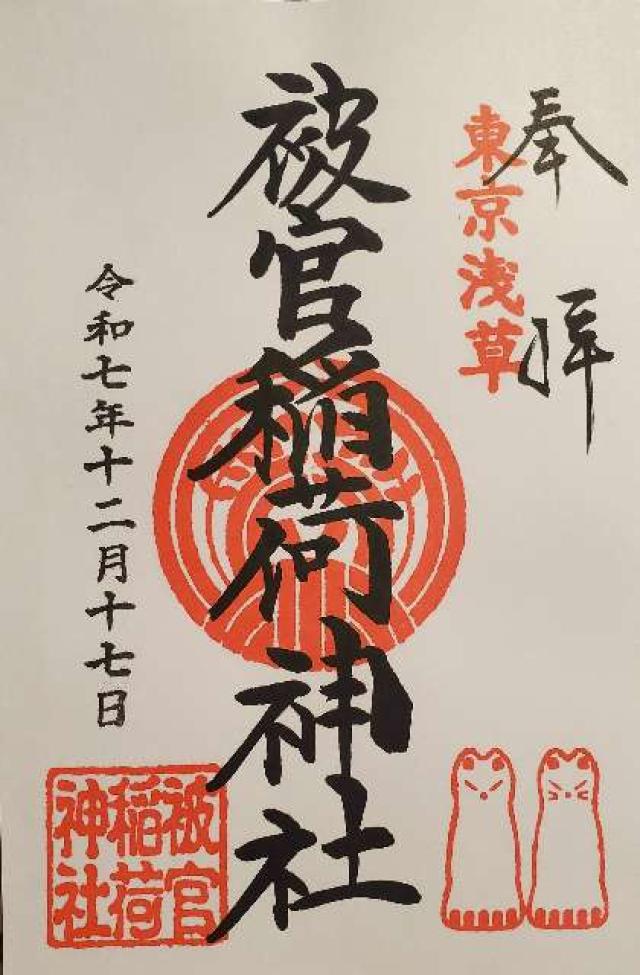 奉拝
東京浅草
被官稲荷神社
令和七年十二月十七日
被官
稲荷
神社